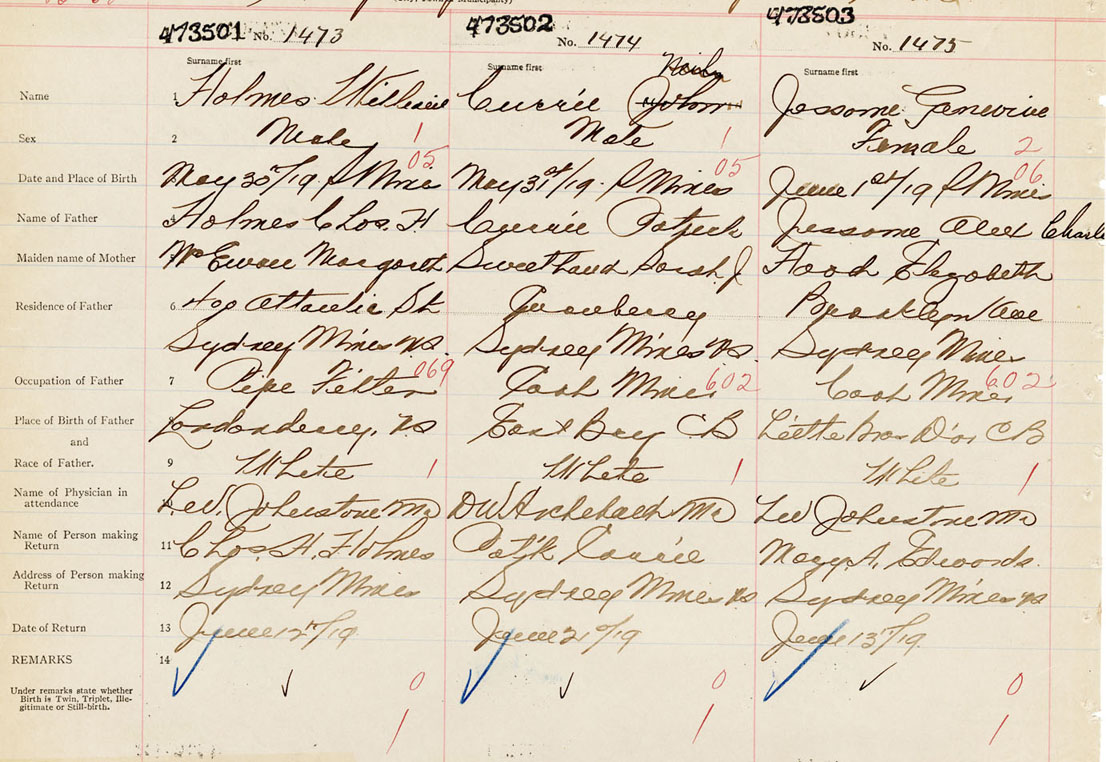 (City, Town or Municipality)
473501 No. 1473 473502 No. 1474 473503 No. 1475
Surname first Surname first Surname first
Name 1 Holmes William Currie John Jessome Genevive
Sex 2 Male 1 Male 1 Female 2
05 05 06
Date and Place of Birth May 30th/19 S Mines May 31st/19 S Mines June 1st/19 S Mines
Name of Father 4 Holmes Chos. H Currie Patrick Jessome Alex Charle
Maiden name of Mother McEwan Margaret Sweetland Sarah J Flood Elizabeth
Residence of Father 6 Atlantic St Queenberry Brooklyn Ave
Sydney Mines NS Sydney Mines NS. Sydney Mines
Occupation of Father 7 Pipe Fitter 069 Coal Miner 602 Coal Miner 602
Place of Birth of Father Londonderry, NS East Bay CB Little Bras D'or CB
and
Race of Father. 9 White 1 White 1 White 1
Name of Physician in
attendance 10 Johnstone MD DW Archibald MD Johnstone MD
Name of Person making
Return 11 Chos. H. Holmes Pat'k Currie Mary A. Edwards.
Address of Person making
Return 12 Sydney Mines Sydney Mines NS Sydney Mines NS
Date of Return 13 June 12th/19 June 21st/19 June 13th/19.
REMARKS 14
Under remarks state whether
Birth is Twin, Triplet, Ille-
gitimate or Still-birth.
0 0 0
1 1 1